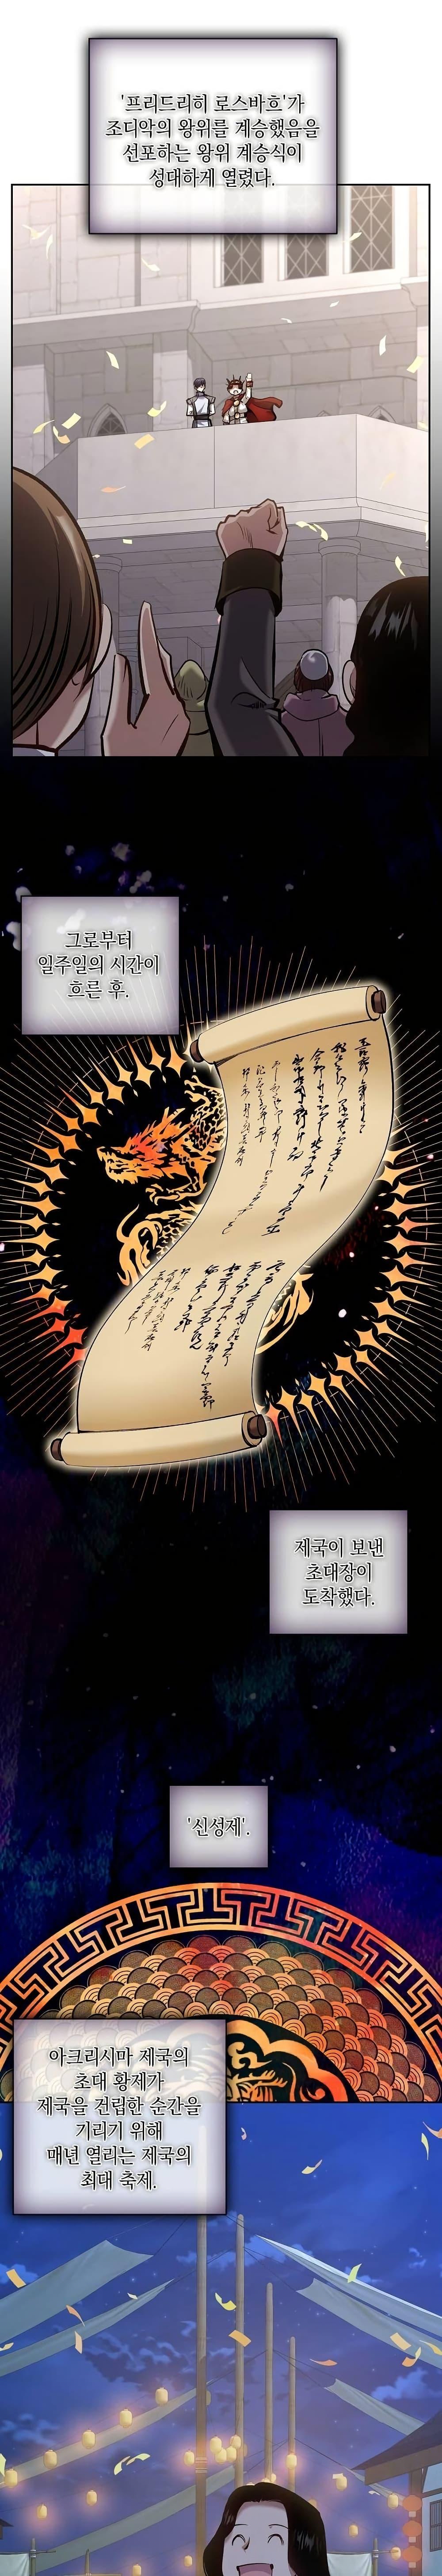 '프리드리히 로스바흐'가
조디악의 왕위를 계승했음을
선포하는 왕위 계승식이
성대하게 열렸다.
그로부터
일주일의 시간이
흐른 후.
제국이 보낸
초대장이
도착했다.
'신성제'.
아크리시마 제국의
초대 황제가
제국을 건립한 순간을
기리기 위해
매년 열리는 제국의
최대 축제.